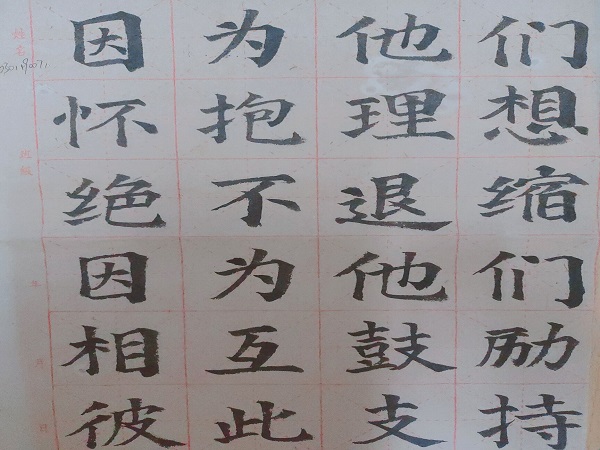 因为他们
怀抱理想
绝不退缩
因为他们
相互鼓励
彼此支持
姓名
班级